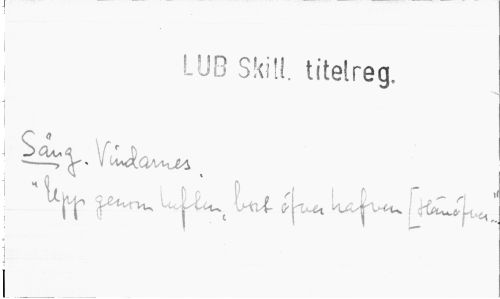 LUB Skill. titelreg.
Sång. Vindarnes.
"Upp genom luften, bort öfver hafven